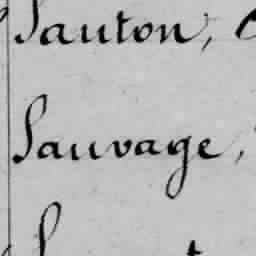 Santon,
Sauvage,